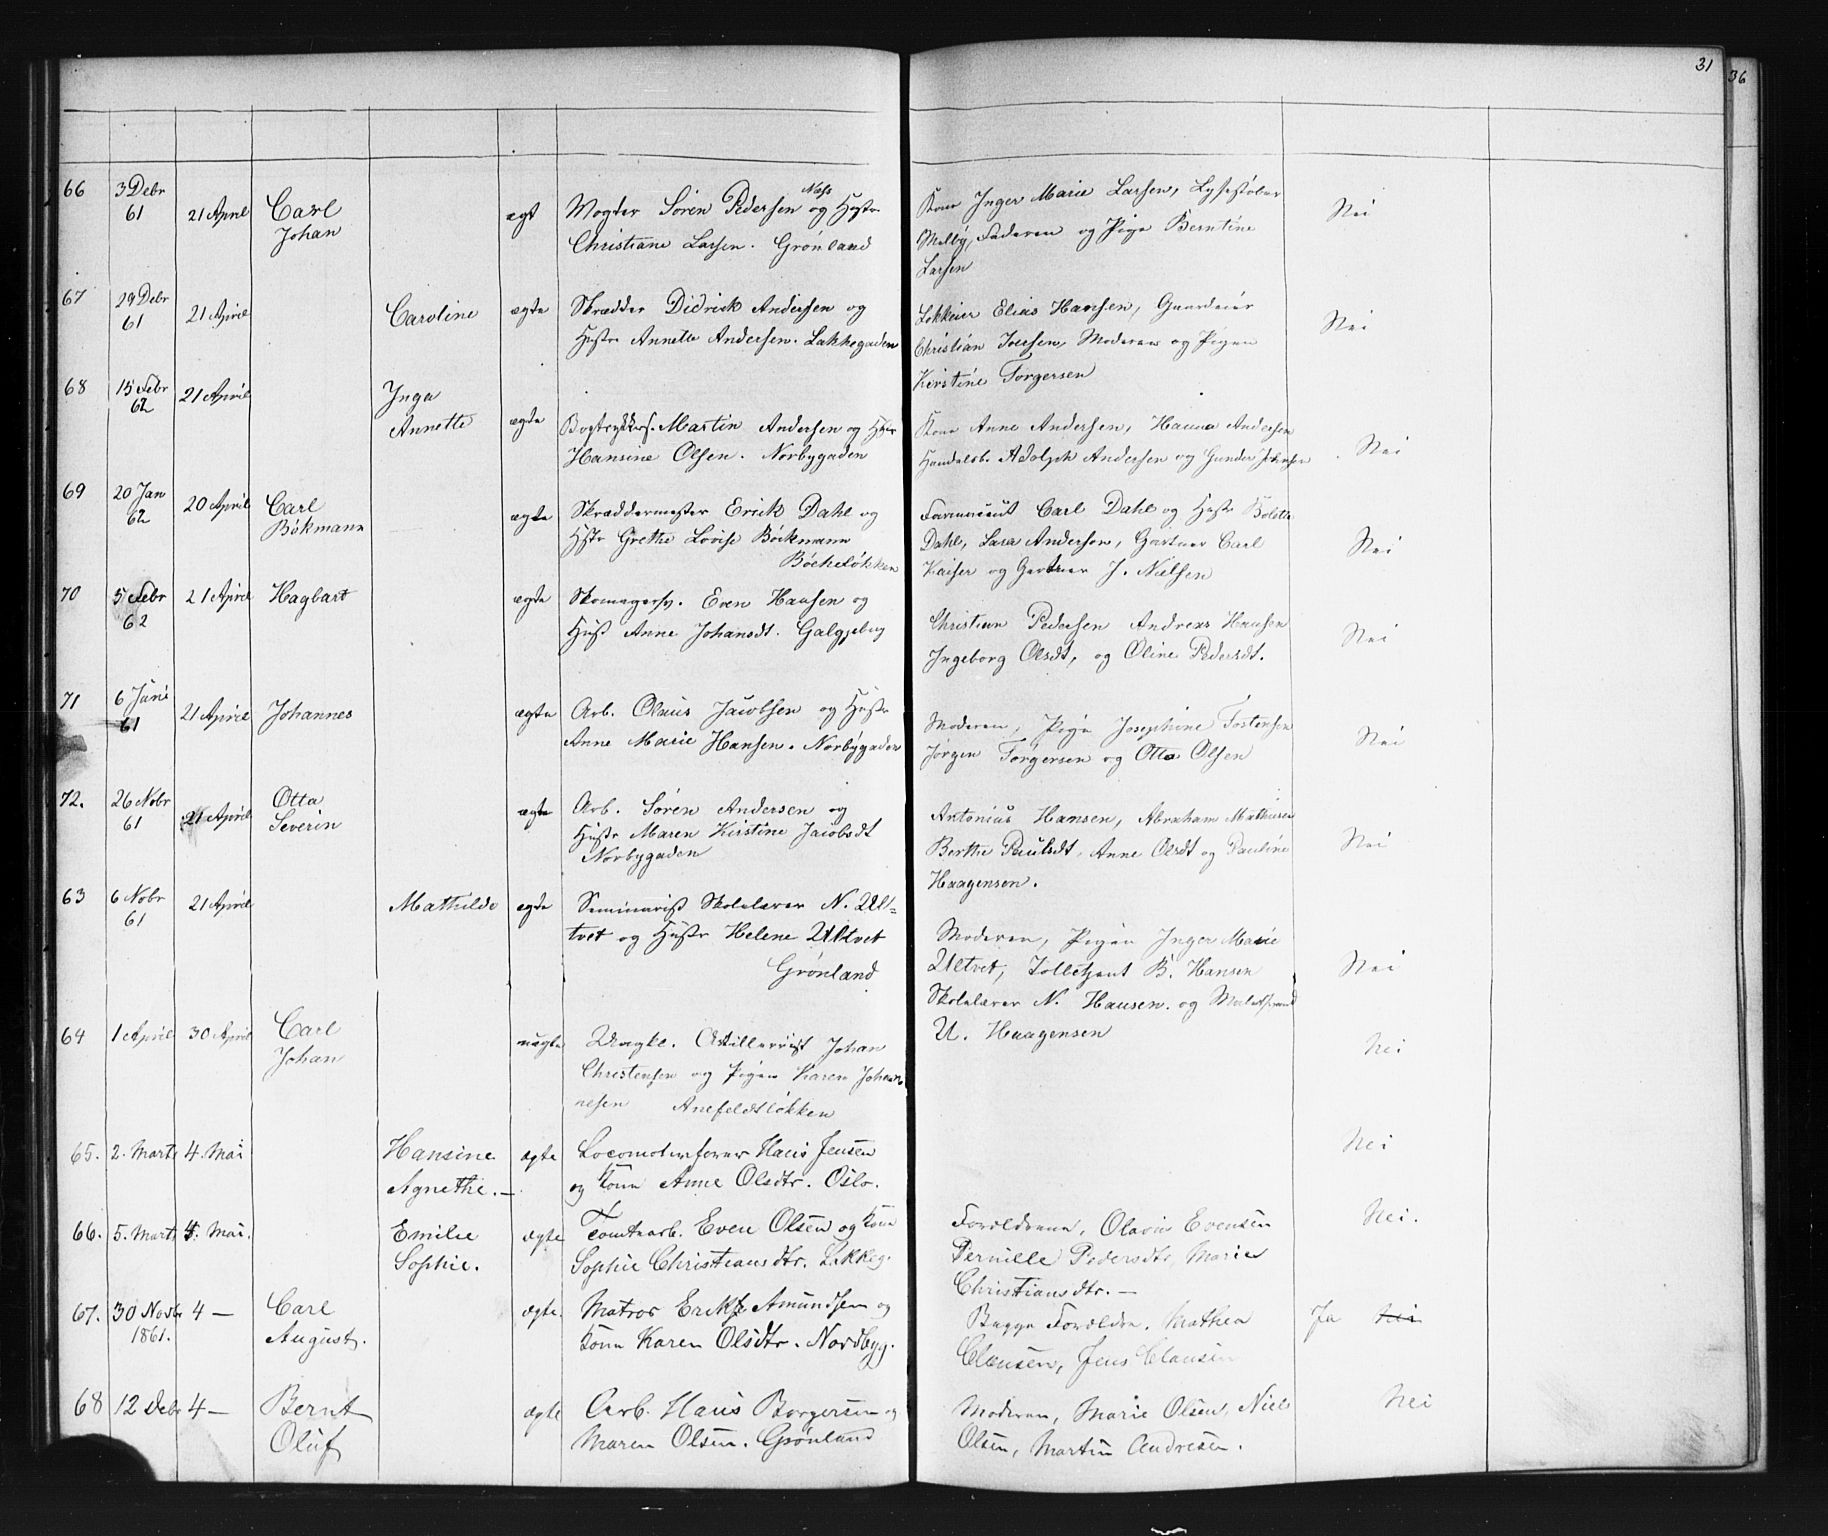 31
36
66 3 Debr 61 21 April Carl Johan ægt Vogter Sören Pedersen Næss og Hustr
Christiane Larsen. Grönland
Kone Inger Marie Larsen, Lysestöber
Melby, Faderen og Pige Berntine
Larsen
Nei
67 29 Debr 61 21 April Caroline ægte Skrædder Didrick Andersen og
Hustr Annette Andersen. Lakkegaden
Løkkeier Elias Hansen, Gaardeier
Christian Joensen, Moderen og Pigen
Kirstine Torgersen
Nei
68 15 Febr 62 21 April Inga Annette ægte Bogtrykkers. Martin Andersen og Hustr
Hansine Olsen. Norbygaden
Kone Anne Andersen, Hanna Andersen
Handelsb. Adolph Andersen og Gunder Johnsen
Nei
69 20 Jan 62 20 April Carl Bökmann ægte Skræddermester Erick Dahl og
Hstr Grethe Lovise Böckmann
Böcheløkken
Farmaceut Carl Dahl og Hustr
Dahl, Lars Anderson, Gartner Carl
Kaiser og Gartner J. Nielsen
Nei
70 5 Febr 62 21 April Hagbart ægte Skomagersv. Even Hansen og
Hust Anne Johansdt. Galgeberg
Christian Pedersen Andreas Hansen
Ingeborg Olsdt, og Oline Pedersdt.
Nei
71 6 Juni 61 21 April Johannes ægte Arb. Olaus Jacobsen og Hustr
Anne Marie Hansen. Norbygaden
Moderen, Pige Josephine Tostensen
Jörgen Torgersen og Otto Olsen
Nei
72. 26 Nobr 61 21 April Otta Severin ægte Arb. Sören Andersen og
Hustr Maren Kirstine Jacobsdt
Norbygaden
Antonius Hansen, Abraham Mathisen
Berthe Paulsdt, Anne Olsdt og Pauline
Haagensen.
Nei
63 6 Nobr 61 21 April Mathilde ægte Seminarist Skolelærer N. Ult-
tvet og Hustr Helene Ultvet
Grönland
Moderen, Pigen Inger Marie
Ultvet, Toldbetjent B. Hansen
Skolelærer N. Hansen og
U. Haagensen
Nei
64 1 April 30 April Carl Johan uægte Uægte. Artillerist Johan
Christensen og Pigen Karen Johan-
nesen Anefeldtløkken
Nei
65. 2. Marts 4. Mai Hansine Agnethe. — ægte Locomotivfører Hans Jensen
og Kone Anne Olsdtr. Oslo.
Nei
66. 5. Marts 4. Mai. Emilie Sophie. ægte Tomtearb. Even Olsen og Kone
Sophie Christiansdtr. Lakkeg.
Forældrene, Olavia Evensen
Pernille Pedersdtr, Maria
Christiansdtr. —
Nei.
67. 30 Novbr 1861. 4 — Carl August. ægte. Matros Erik Amundsen og
Kone Karen Olsdtr. Nordbyg.
Begge Forældre. Mathea
Clausen, Jens Clausen
Ja Nei
68 12 Debr 4 — Bernt Oluf ægte Arb. Hans Borgersen og
Maren Olsen. Grönland
Moderen, Marie Olsen, Niels
Olsen, Martin Andresen.
Nei